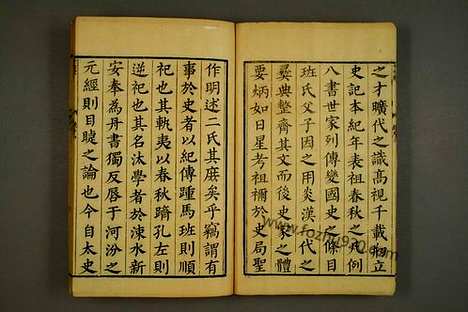 之才曠代之識高視千載創立
史記本紀年表祖春秋之凡例
八書世家列傳變國史之條目
班氏父子因之用炎漢一代之
彛典整齊其文而後史家之體
要炳如日星考祖禰於史局聖
作明述二氏其庶矣乎竊謂有
事於史者以紀傳踵馬班則順
祀也其軌夷以春秋躋孔左則
逆祀也其名汰學者於涑水新
安奉為丹書獨反唇于河汾之
元經則目睫之論也今自太史